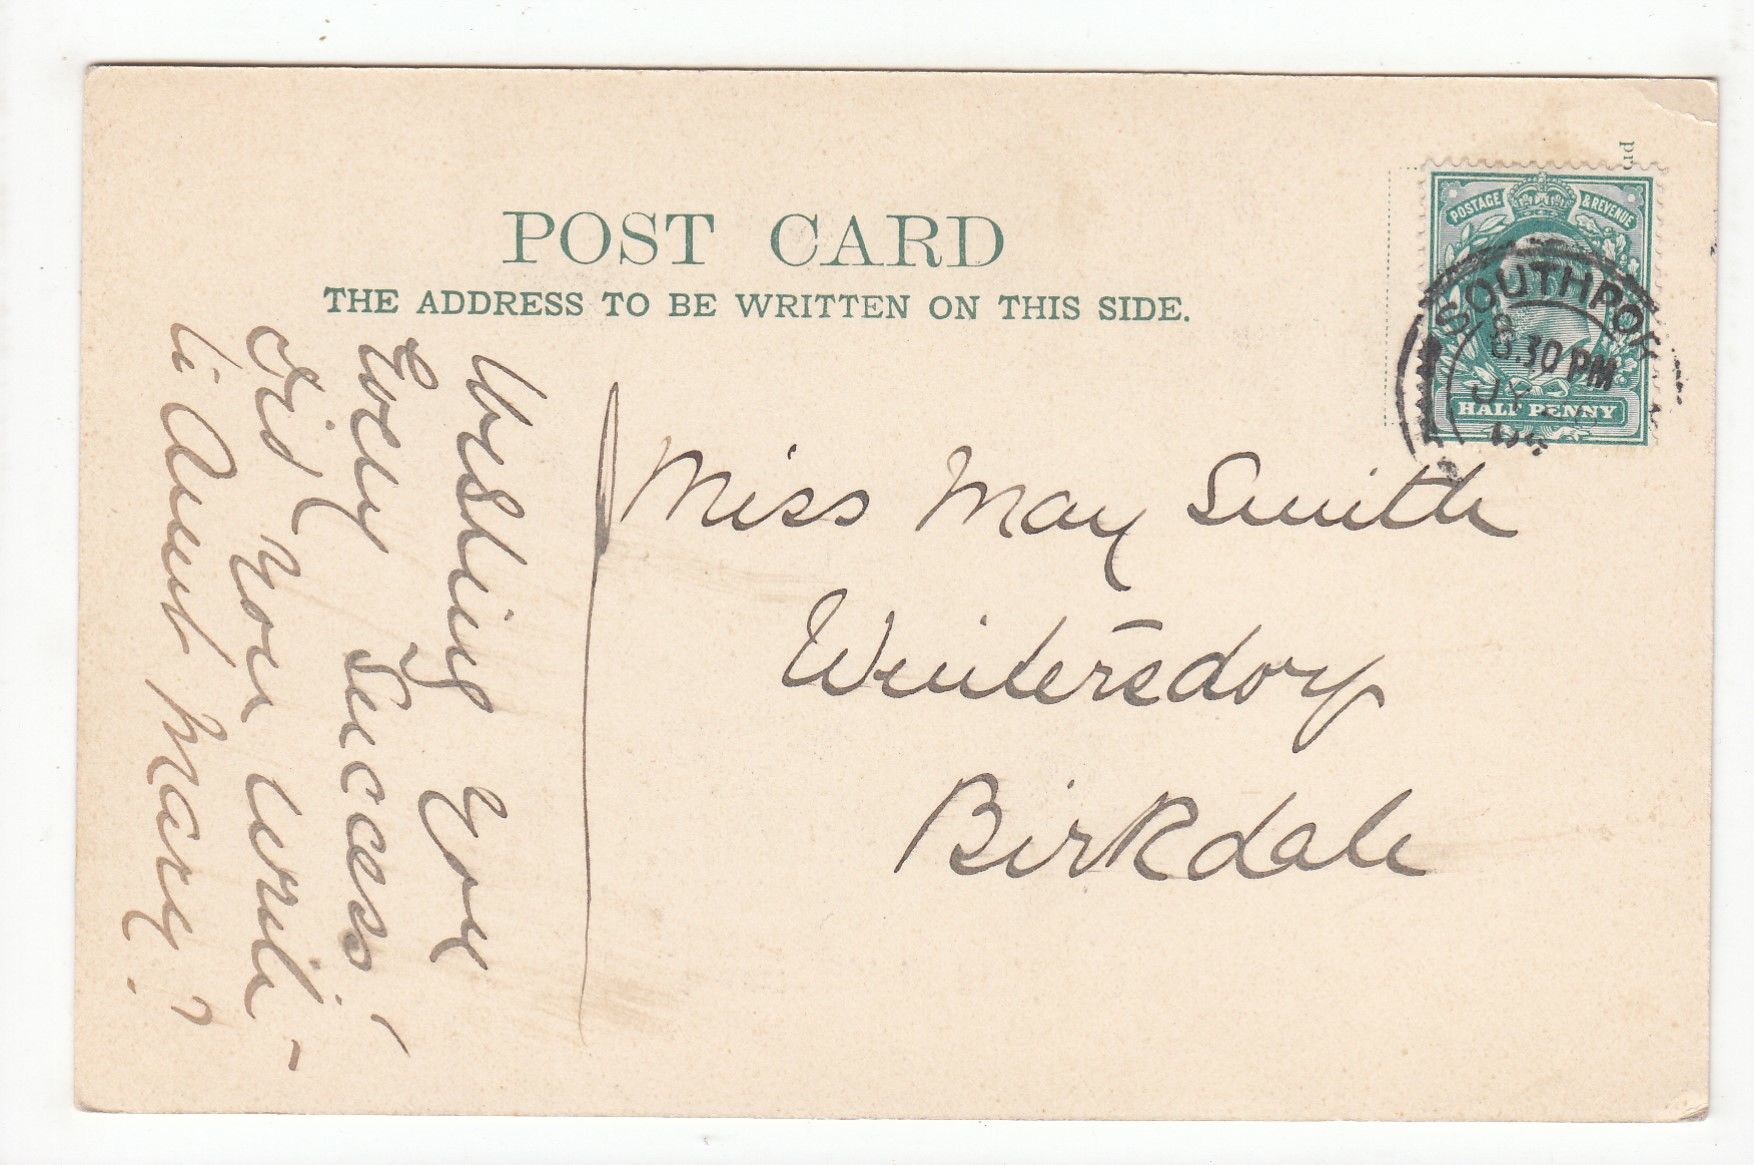 POST CARD
THE ADDRESS TO BE WRITTEN ON THIS SIDE.
POSTAGE & REVENUE
SOUTHPO
8.30 PM
JY
HALF PENNY
Miss May Smith
Wintersdorf
Birkdale
Wishing you
Every Success!
did you write
to Aunt Mary?